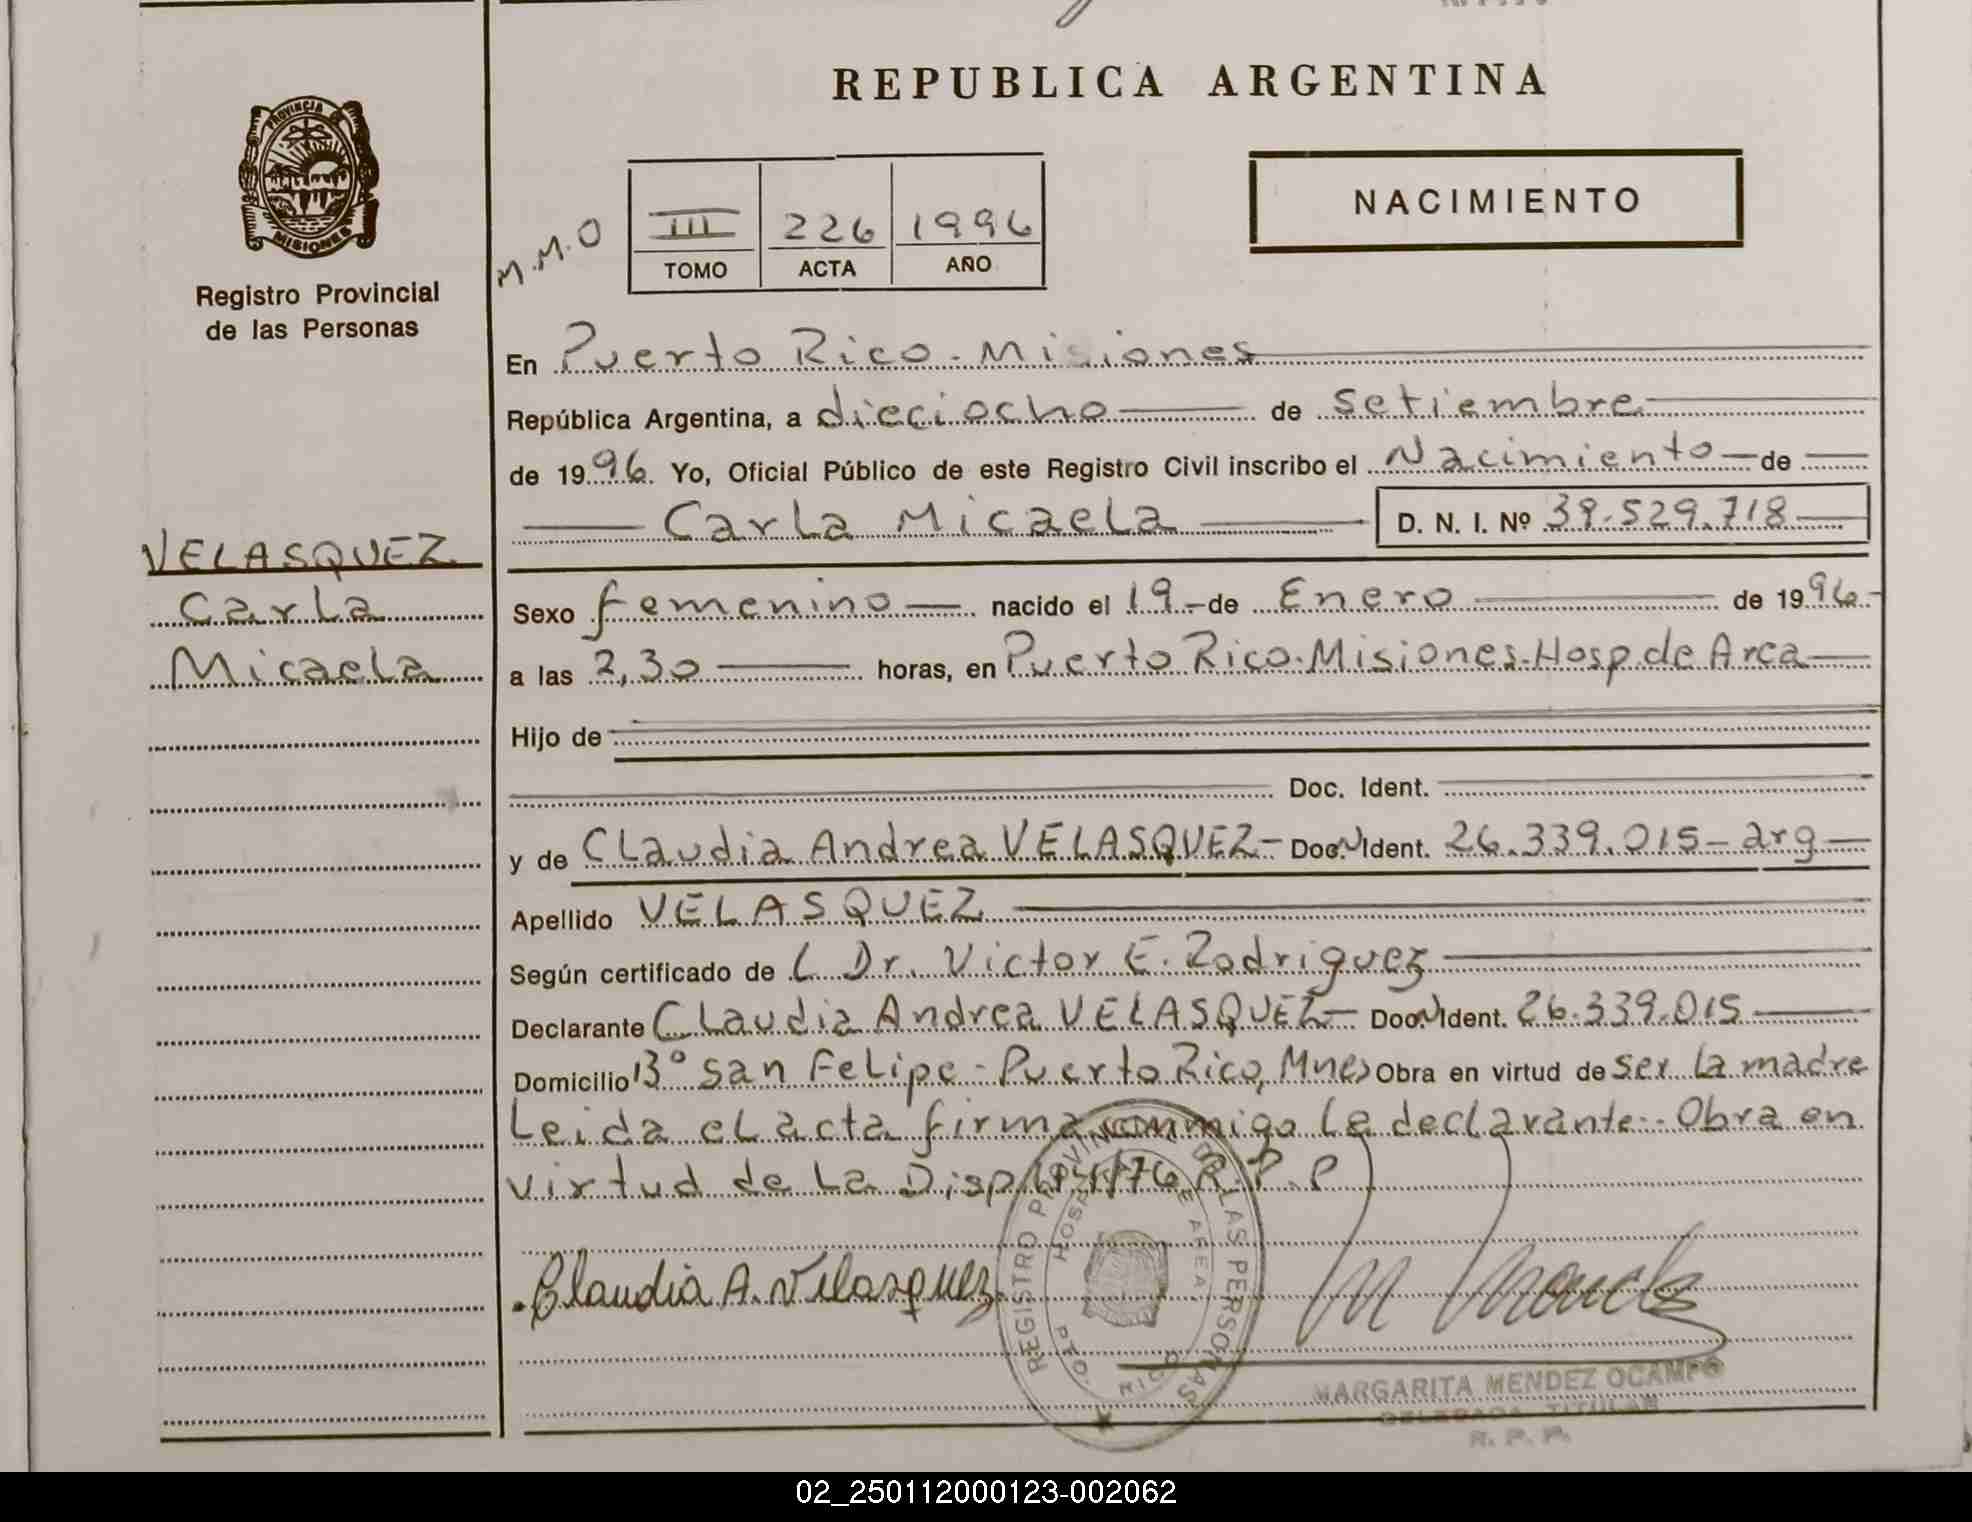 REPUBLICA ARGENTINA
PROVINCIA
MISIONES
Registro Provincial
de las Personas
M.M.O
III 226 1996
TOMO ACTA AÑO
NACIMIENTO
En Puerto Rico - Misiones
República Argentina, a dieciocho de setiembre
de 1996. Yo, Oficial Público de este Registro Civil inscribo el Nacimiento de
Carla Micaela D. N. I. Nº 39.529.718
VELASQUEZ
Carla
Micaela
Sexo femenino nacido el 19 de Enero de 1996
a las 2,30 horas, en Puerto Rico. Misiones. Hosp. de Area
Hijo de
Doc. Ident.
y de Claudia Andrea VELASQUEZ - Doc. Ident. 26.339.015 - arg
Apellido VELASQUEZ
Según certificado de L Dr. Victor E. Rodriguez
Declarante Claudia Andrea VELASQUEZ - Doc. Ident. 26.339.015
Domicilio Bº San Felipe - Puerto Rico, Mnes Obra en virtud de ser la madre
Leida el acta firma conmigo la declarante.. Obra en
virtud de la Disp. /76 R.P.P
Claudia A. Velasquez
REGISTRO PROVINCIAL DE LAS PERSONAS
HOSPITAL DE AREA
PTO. RICO
MARGARITA MENDEZ OCAMPO
DELEGADA TITULAR
R. P. P.
02_250112000123-002062